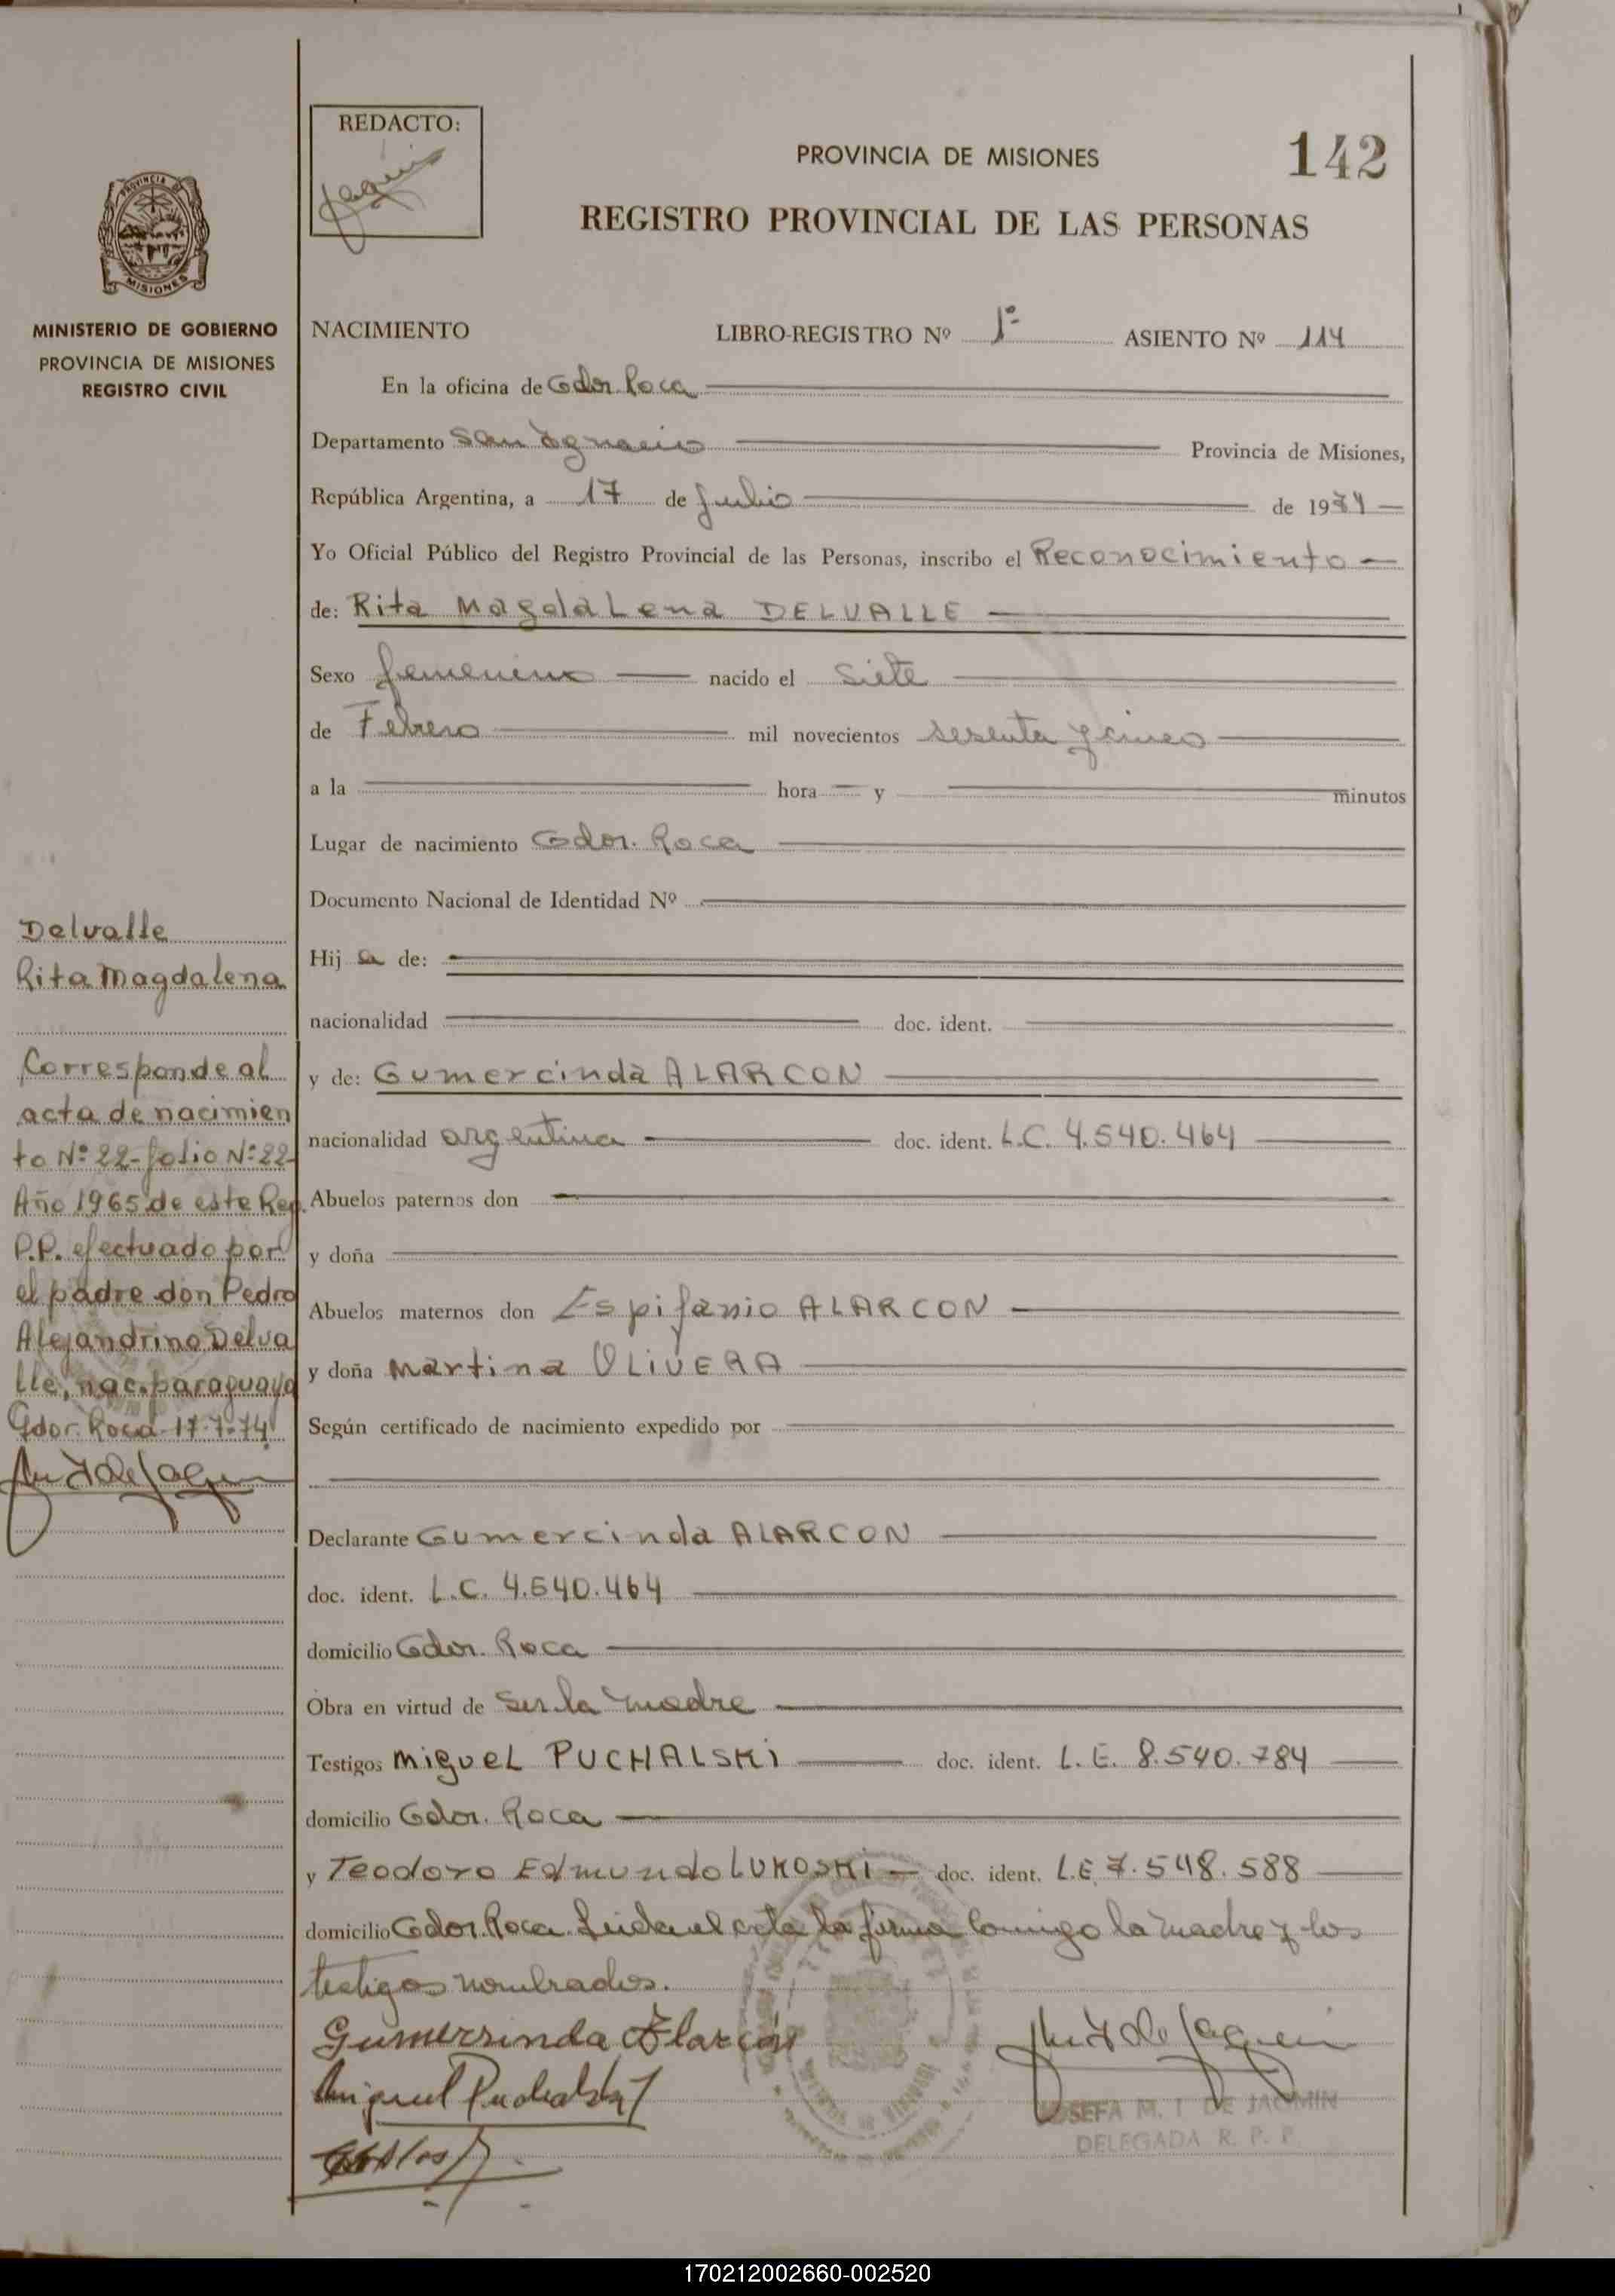 142
REDACTO:
PROVINCIA DE MISIONES
REGISTRO PROVINCIAL DE LAS PERSONAS
PROVINCIA DE
MISIONES
MINISTERIO DE GOBIERNO
PROVINCIA DE MISIONES
REGISTRO CIVIL
NACIMIENTO LIBRO-REGISTRO Nº 1º ASIENTO Nº 114
En la oficina de Gdor. Roca
Departamento San Ignacio Provincia de Misiones,
República Argentina, a 17 de Julio de 1974
Yo Oficial Público del Registro Provincial de las Personas, inscribo el Reconocimiento
de: Rita Magdalena DELVALLE
Sexo femenino nacido el siete
de Febrero mil novecientos sesenta y cinco
a la hora y minutos
Lugar de nacimiento Gdor. Roca
Documento Nacional de Identidad Nº
Hij a de:
nacionalidad doc. ident.
y de: Gumercinda ALARCON
nacionalidad argentina doc. ident. L.C. 4.540.464
Abuelos paternos don
y doña
Abuelos maternos don Espifanio ALARCON
y doña Martina OLIVERA
Según certificado de nacimiento expedido por
Declarante Gumercinda ALARCON
doc. ident. L.C. 4.540.464
domicilio Gdor. Roca
Obra en virtud de ser la madre
Testigos Miguel PUCHALSKI doc. ident. L.E. 8.540.784
domicilio Gdor. Roca
y Teodoro Edmundo LUKOSKI doc. ident. L.E 7.548.588
domicilio Gdor. Roca. Leida el acta la firma conmigo la madre y los
testigos nombrados.
Gumersinda Alarcón
Miguel Puchalski
JOSEFA M. I. DE JACMIN
DELEGADA R. P. P.
Delvalle
Rita Magdalena
Corresponde al
acta de nacimien
to Nº 22-folio Nº 22-
Año 1965 de este Reg.
P.P. efectuado por
el padre don Pedro
Alejandrino Delva
lle, nac. paraguaya
Gdor. Roca 17-7-74
170212002660-002520